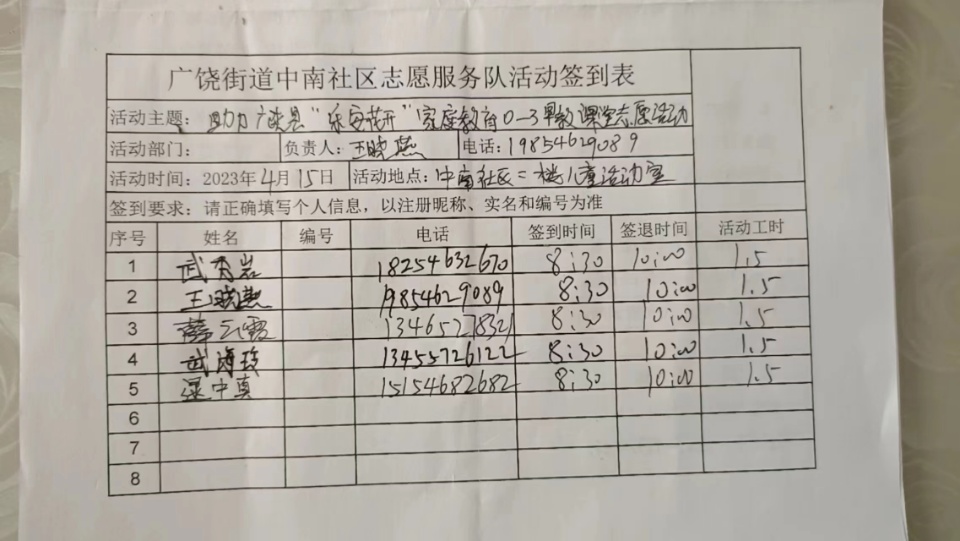 广饶街道中南社区志愿服务队活动签到表
活动主题：助力广饶县“乐安花开”家庭教育0-3早教课堂志愿活动
活动部门： 负责人：王晓燕 电话：19854629089
活动时间：2023年4月15日 活动地点：中南社区二楼儿童活动室
签到要求：请正确填写个人信息，以注册昵称、实名和编号为准
序号 姓名 编号 电话 签到时间 签退时间 活动工时
1 武秀岩 18254632670 8:30 10:00 1.5
2 王晓燕 19854629089 8:30 10:00 1.5
3 薛云霞 13465278321 8:30 10:00 1.5
4 武海玲 13455726122 8:30 10:00 1.5
5 中真 15154682682 8:30 10:00 1.5
6
7
8